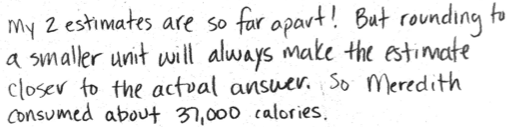 My 2 estimates are so far apart! But rounding to
a smaller unit will always make the estimate
closer to the actual answer. So Meredith
consumed about 37,000 calories.